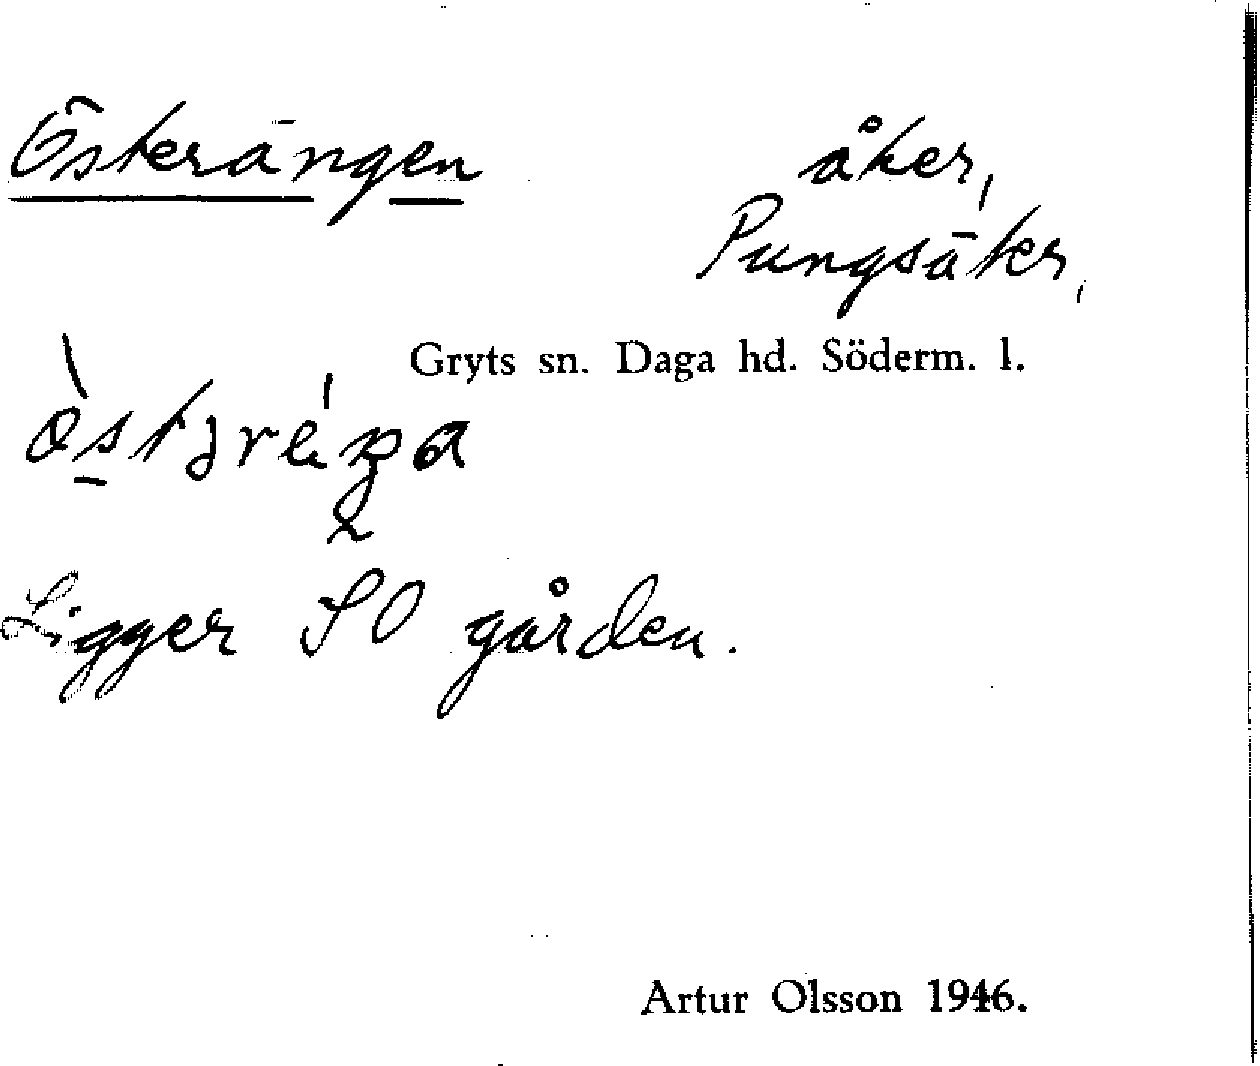 Österängen åker,
Pungsäker,
Gryts sn. Daga hd. Söderm. l.
Ligger SO gården.
Artur Olsson 1946.